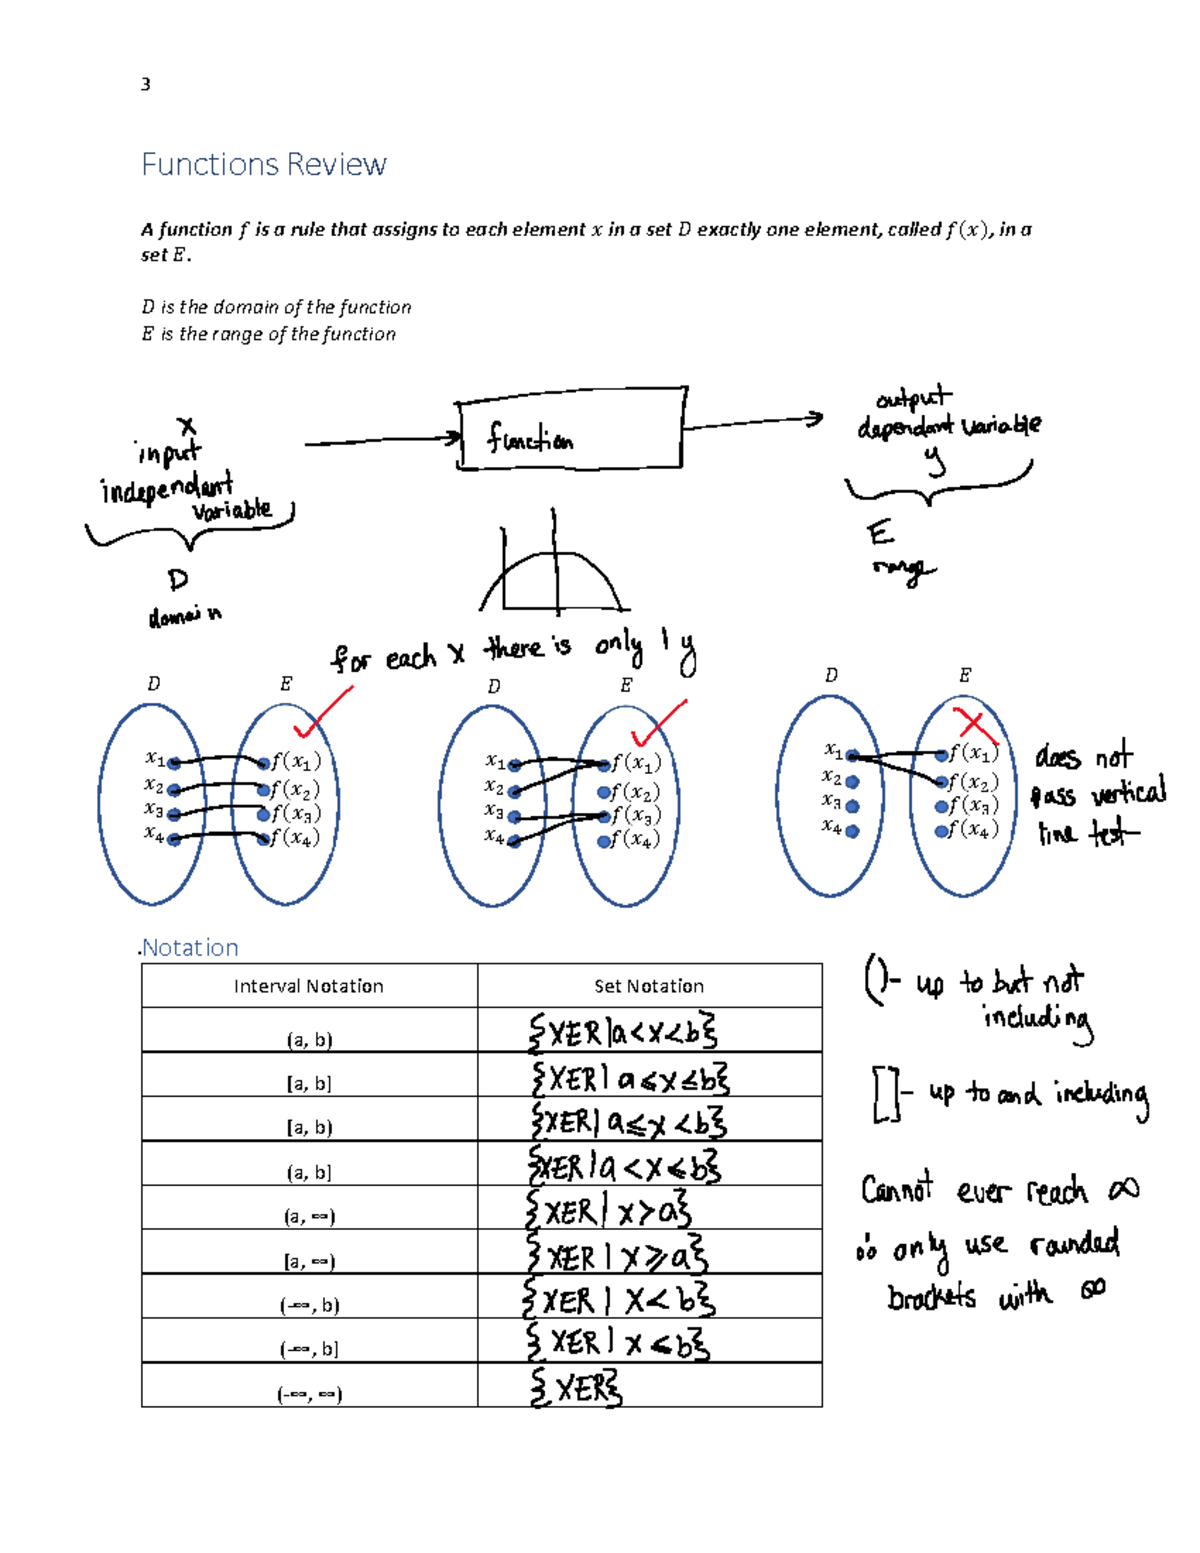 3
Functions Review
A function f is a rule that assigns to each element x in a set D exactly one element, called f(x), in a
set E.
D is the domain of the function
E is the range of the function
x
input
independant
variable
D
domain
function
output
dependant variable
y
E
range
for each x there is only 1 y
D E
x₁ f(x₁)
x₂ f(x₂)
x₃ f(x₃)
x₄ f(x₄)
D E
x₁ f(x₁)
x₂ f(x₂)
x₃ f(x₃)
x₄ f(x₄)
D E
x₁ f(x₁)
x₂ f(x₂)
x₃ f(x₃)
x₄ f(x₄)
does not
pass vertical
line test
.Notation
Interval Notation Set Notation
(a, b) {XER|a<x<b}
[a, b] {XER| a≤x≤b}
[a, b) {XER| a≤x<b}
(a, b] {XER|a<x≤b}
(a, ∞) {XER| x>a}
[a, ∞) {XER| x≥a}
(-∞, b) {XER| x<b}
(-∞, b] {XER| x≤b}
(-∞, ∞) {XER}
()- up to but not
including
[]- up to and including
Cannot ever reach ∞
∴ only use rounded
brackets with ∞